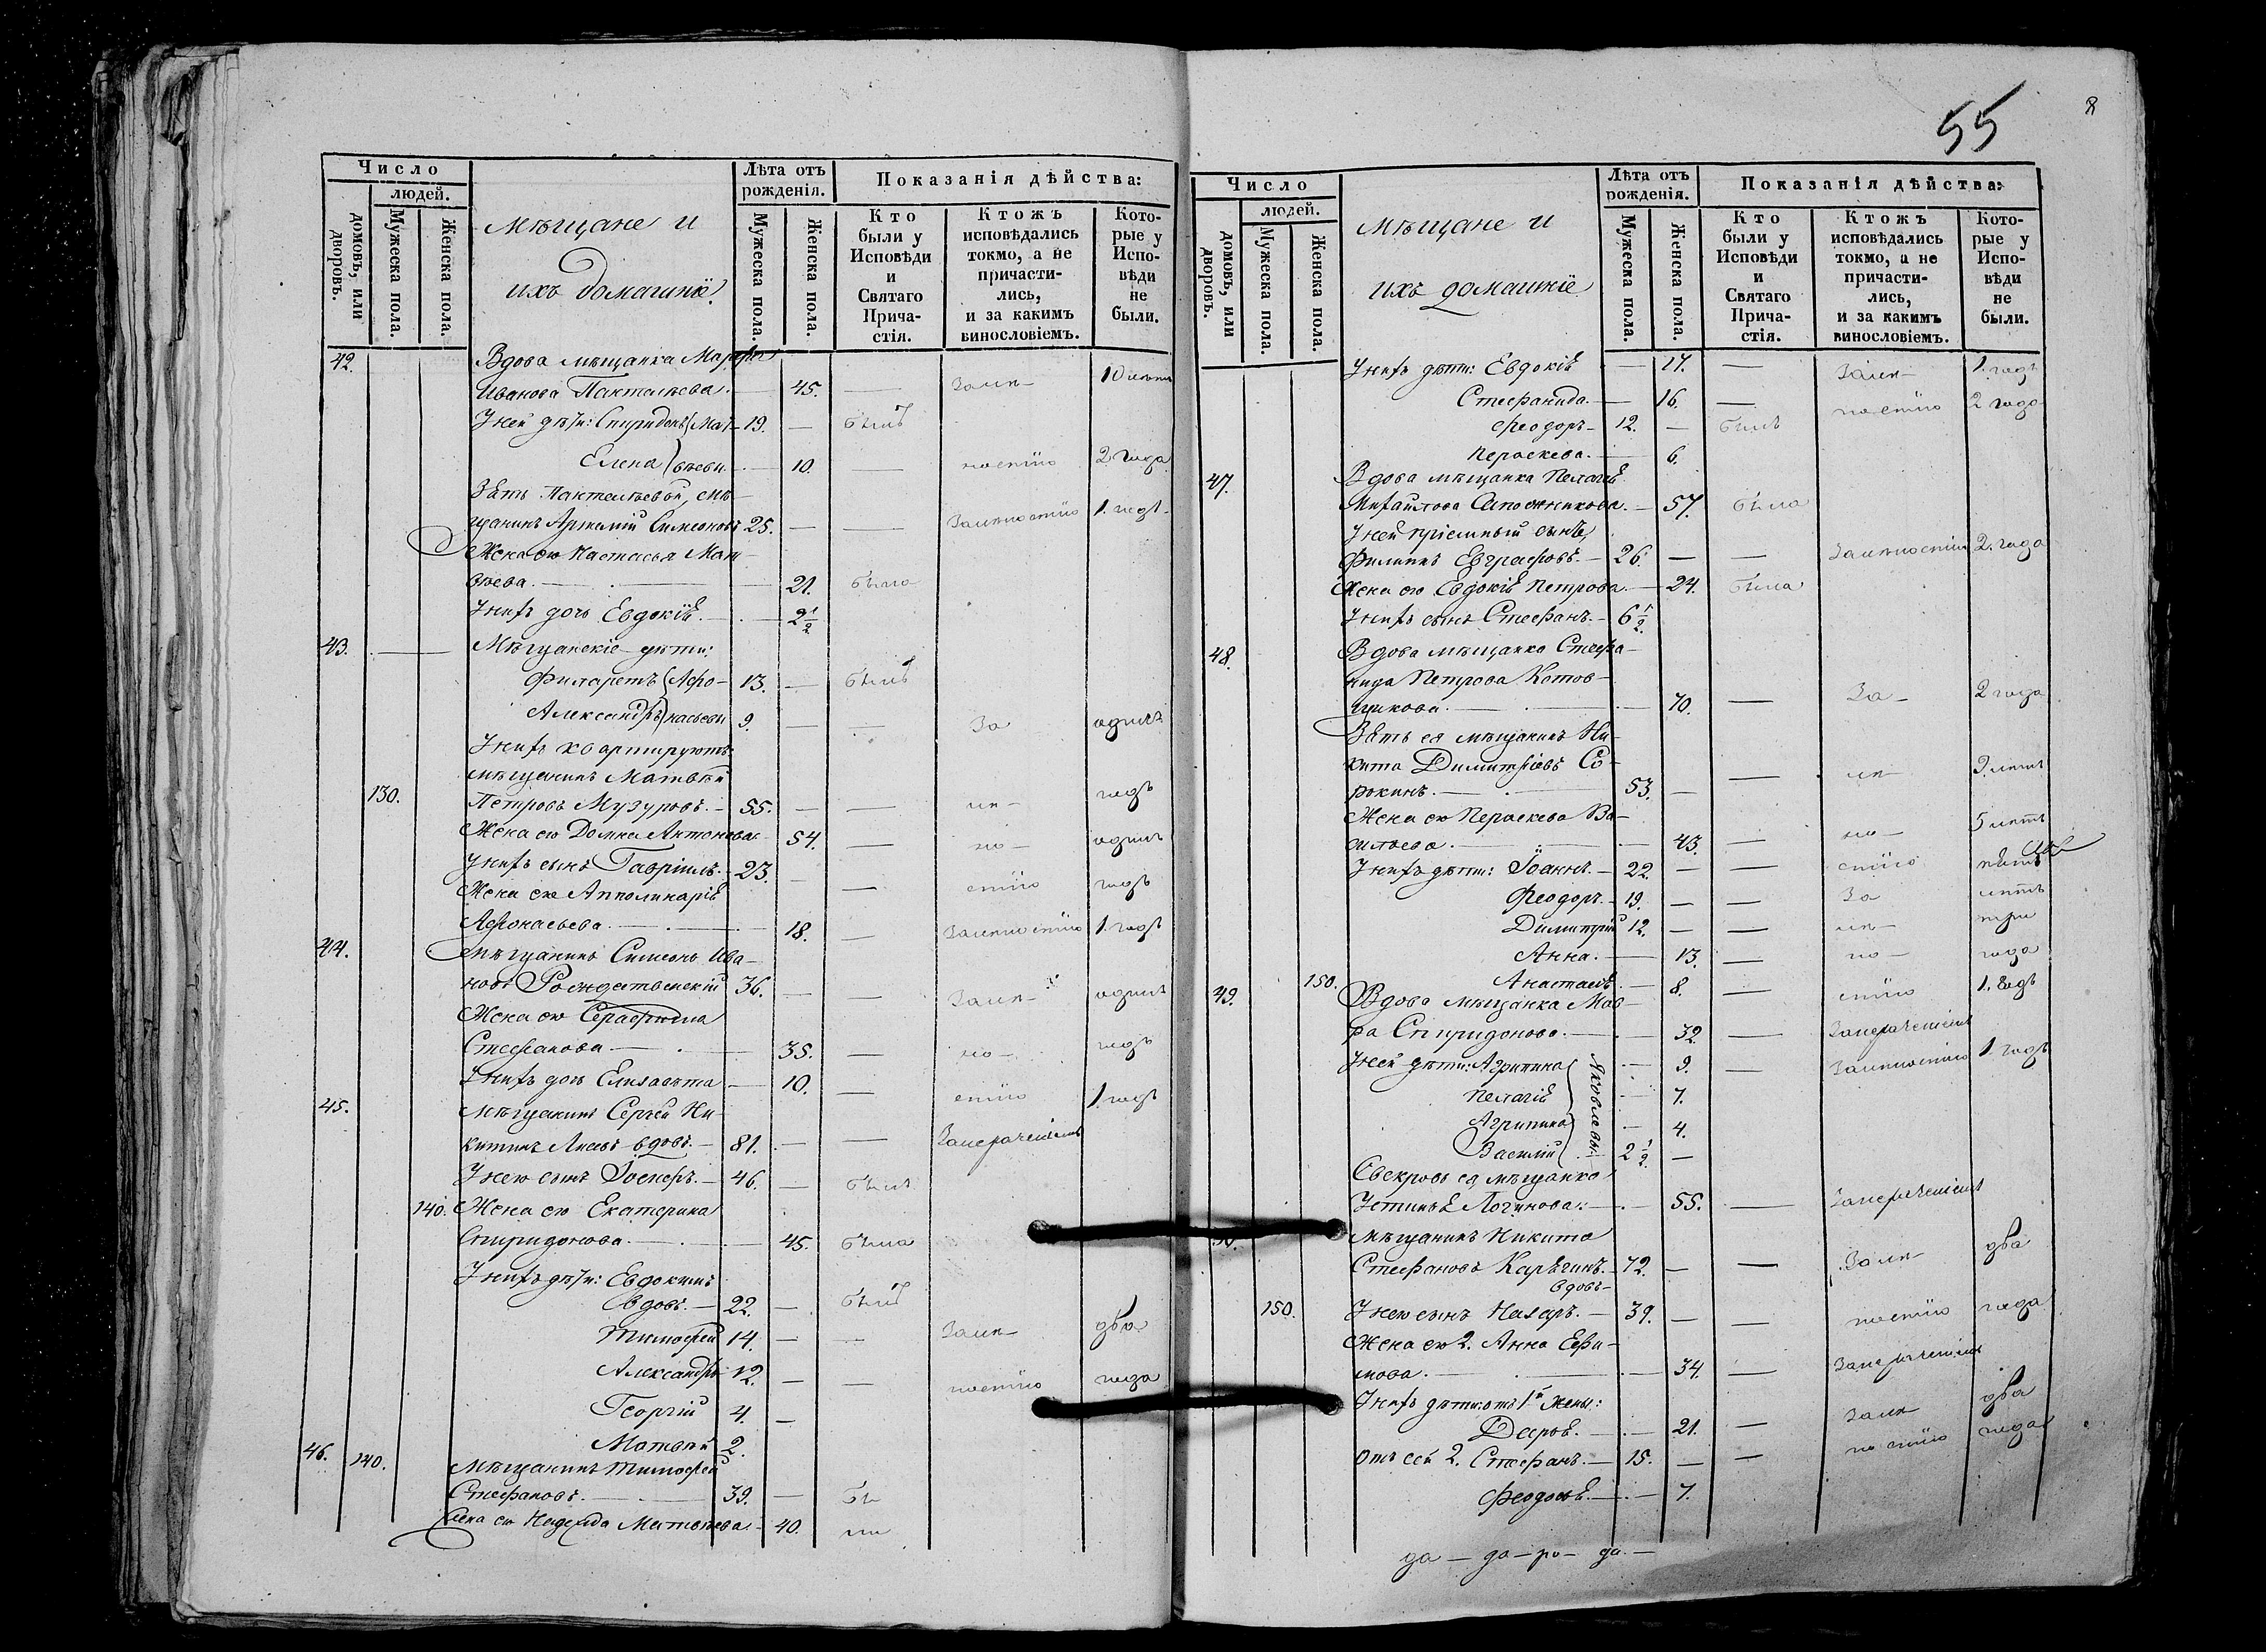 55
8
Число
людей.
домовъ, или дворовъ.
Мужеска пола.
Женска пола.
Мѣщане и
ихъ домашніе.
Лѣта отъ рожденія.
Мужеска пола.
Женска пола.
Показанія дѣйства:
Кто были у Исповѣди и Святаго Причастія.
Ктожъ исповѣдались токмо, а не причастились, и за какимъ винословіемъ.
Которые у Исповѣди не были.
42. Вдова мѣщанка Марфа
Иванова Пантелѣева. 45. — залѣ- 10 лѣтъ
У ней дѣти: Спиридонъ Мат- 19. — былъ
Елена вѣевы 10. — ностію 2 года
Зять Пантелѣевой, мѣ-
щанинъ Артемій Симеоновъ 25. — — залѣностію 1. годъ
Жена его Настасья Мат-
вѣева. — 21. была
У нихъ дочь Евдокія. — 2 1/2
43. Мѣщанскіе дѣти:
Филаретъ Афо- 13. — былъ
Александръ насьевы 9. — — за одинъ
У нихъ квартируютъ
мѣщанинъ Матвѣй
130. Петровъ Музуровъ. — 55. — — лѣ- годъ
Жена его Домна Антонова 54. — но- одинъ
У нихъ сынъ Гавріилъ. — 23. — — стію годъ
Жена его Апполинарія
Афонасьева. — 18. — залѣностію 1. годъ
44. Мѣщанинъ Симеонъ Ива-
новъ Рождественскій 36. — — залѣ- одинъ
Жена его Серафима
Стефанова — 35. — но- годъ
У нихъ дочь Елизавета — 10. — стію 1. годъ
45. Мѣщанинъ Сергѣй Ни-
китинъ вдовъ. — 81. — —
У него сынъ Іосифъ. — 46. — былъ
140. Жена его Екатерина
Спиридонова. — 45. была
У нихъ дѣти: Евдокимъ
вдовъ. — 22. — былъ
Тимофей 14. — — залѣ- два
Александръ 12. — — ностію года
Георгій 4. —
Матвѣй 2.
46. 140. Мѣщанинъ Тимофей
Стефановъ. — 39. — бы
Жена его Надежда Матвѣева — 40. ли
Число
людей.
домовъ, или дворовъ.
Мужеска пола.
Женска пола.
Мѣщане и
ихъ домашніе
Лѣта отъ рожденія.
Мужеска пола.
Женска пола.
Показанія дѣйства:
Кто были у Исповѣди и Святаго Причастія.
Ктожъ исповѣдались токмо, а не причастились, и за какимъ винословіемъ.
Которые у Исповѣди не были.
У нихъ дѣти: Евдокія — 17. — залѣ- 1. годъ
Стефанида. — 16. — ностію 2 года
Феодоръ — 12. — былъ
Пераскева. — 6.
47. Вдова мѣщанка Пелагія
Михайлова Сапожникова. — 57. была
У ней пріемный сынъ
Филиппъ Евграфовъ. — 26. — — залѣностію 2. года
Жена его Евдокія Петрова. — 24. была
У нихъ сынъ Стефанъ. — 6 1/2.
48. Вдова мѣщанка Стефа-
нида Петрова Котов-
щикова. — 70. — за- 2 года
Зять ея мѣщанинъ Ни-
кита Димитріевъ Со-
рокинъ. — 53. — — лѣ- лѣтъ
Жена его Пераскева Ва-
сильева. — 43. — но- 5 лѣтъ
У нихъ дѣти: Іоаннъ. — 22. — — стію пять
Феодоръ. — 19. — — за лѣтъ
Димитрій 12. — — лѣ- три
Анна. — 13. — но- года
150. Анастасія. — 8. — стію 1. годъ
49. Вдова мѣщанка Мав-
ра Спиридонова. — 32 —
У ней дѣти: Агрипина 9. — залѣностію 1. годъ
Пелагія — 7.
Агрипина — 4.
Василій 2 1/2. —
Яковлевы.
Свекровь ея мѣщанка
Устинья Логинова. — 55. —
50. Мѣщанинъ Никита
Стефановъ Карягинъ. — 72. — — залѣ- два
вдовъ-
150. У него сынъ Назаръ. — 39. — — ностію года
Жена его 2. Анна Ефи-
мова. — 34. —
У нихъ дѣти: отъ 1й жены:
Дарья. — 21. — залѣ- два
отъ сей 2. Стефанъ. — 15. — — ностію года
Феодосія. — 7.
да — до — ро — да. —